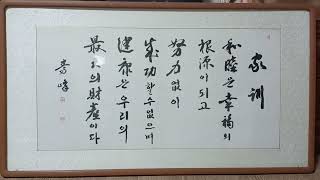 家訓
和睦은幸福의
根源이되고
努力없이
成功할수없으며
健康은우리의
最高의財產이다